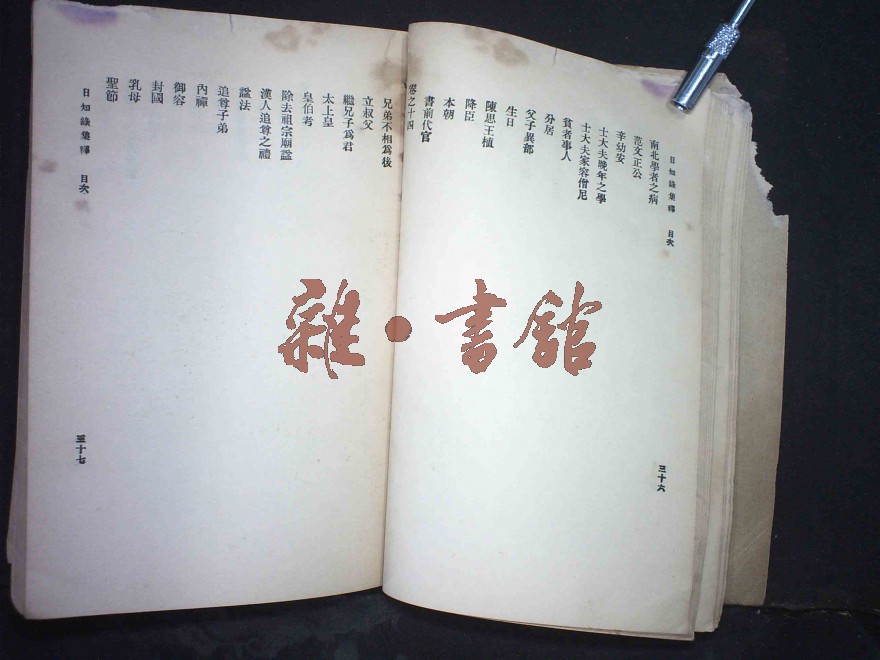 日知錄集釋 目次
南北學者之病
范文正公
辛幼安
士大夫晚年之學
士大夫家容僧尼
貧者事人
分居
父子異部
生日
陳思王植
降臣
本朝
書前代官
三十六
卷之十四
兄弟不相爲後
立叔父
繼兄子爲君
太上皇
皇伯考
除去祖宗廟謚
漢人追尊之禮
謚法
追尊子弟
內禪
御容
封國
乳母
聖節
日知錄集釋 目次
三十七
雜·書館